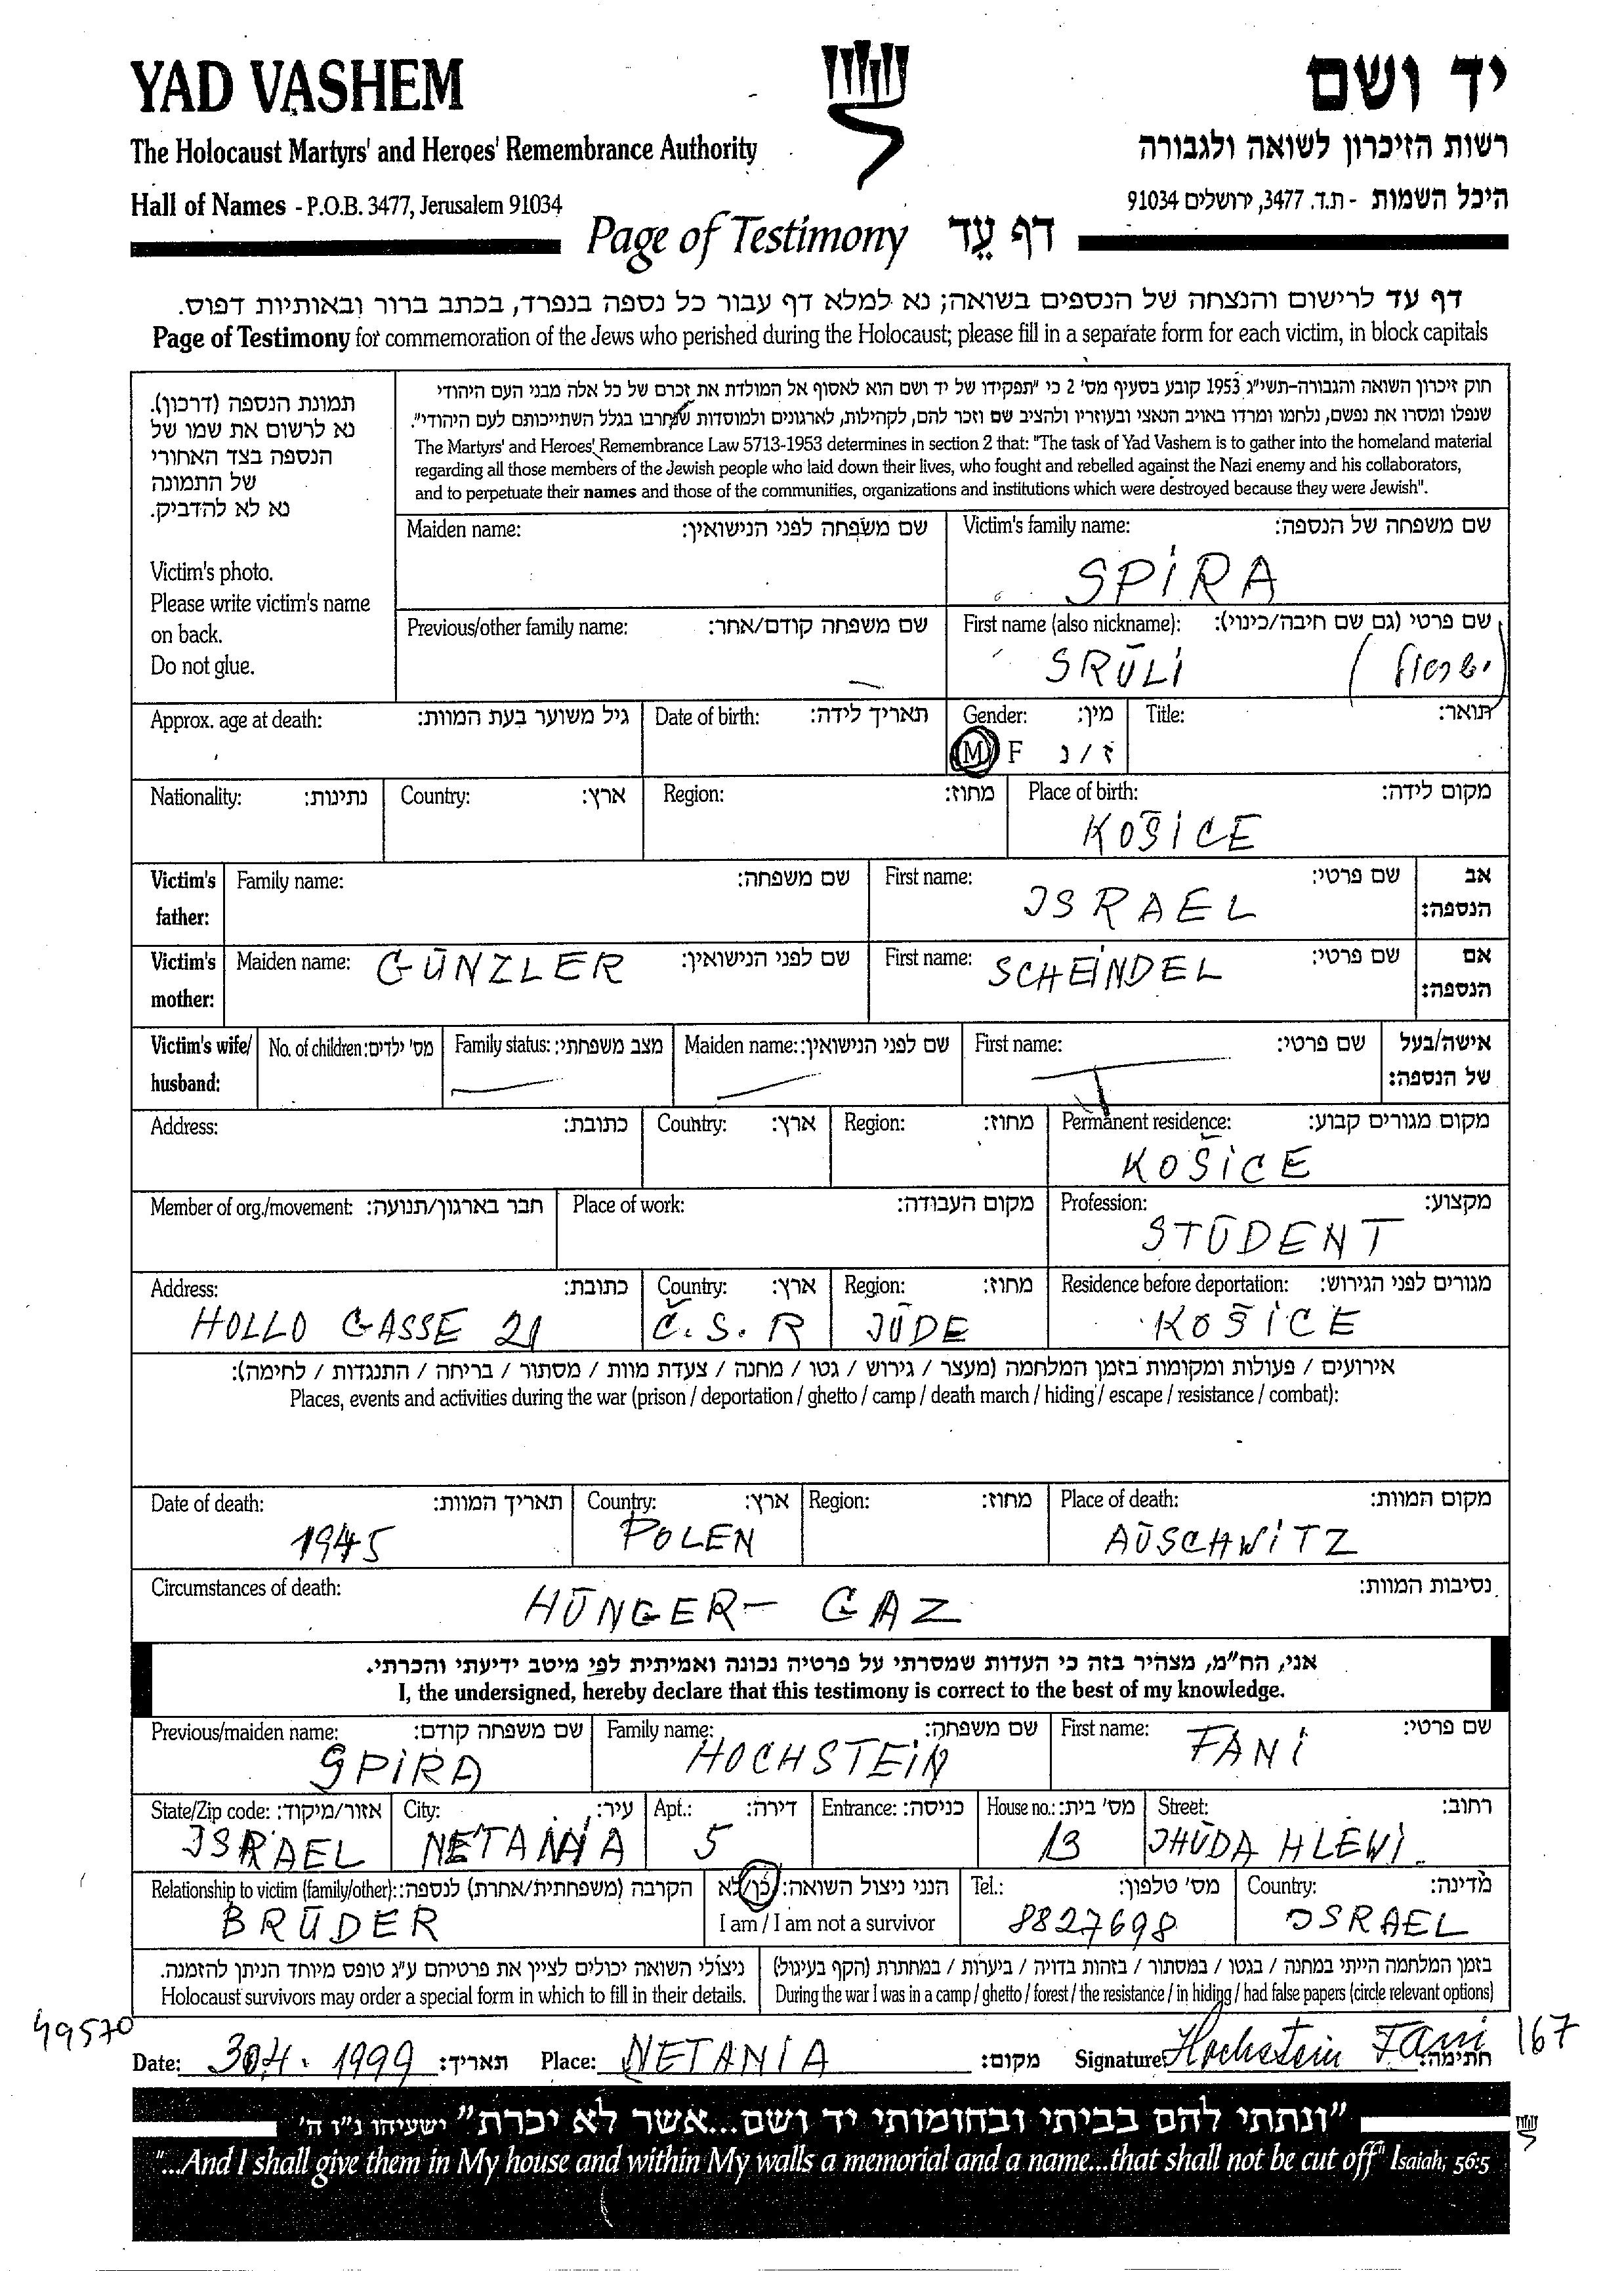 YAD VASHEM
יד ושם
The Holocaust Martyrs' and Heroes' Remembrance Authority
רשות הזיכרון לשואה ולגבורה
Hall of Names - P.O.B. 3477, Jerusalem 91034
היכל השמות - ת.ד. 3477, ירושלים 91034
Page of Testimony דף עֵד
דף עד לרישום והנצחה של הנספים בשואה; נא למלא דף עבור כל נספה בנפרד, בכתב ברור ובאותיות דפוס.
Page of Testimony for commemoration of the Jews who perished during the Holocaust; please fill in a separate form for each victim, in block capitals
תמונת הנספה (דרכון).
נא לרשום את שמו של
הנספה בצד האחורי
של התמונה
נא לא להדביק.
Victim's photo.
Please write victim's name
on back.
Do not glue.
חוק זיכרון השואה והגבורה-תשי"ג 1953 קובע בסעיף מס' 2 כי "תפקידו של יד ושם הוא לאסוף אל המולדת את זכרם של כל אלה מבני העם היהודי
שנפלו ומסרו את נפשם, נלחמו ומרדו באויב הנאצי ובעוזריו ולהציב שם וזכר להם, לקהילות, לארגונים ולמוסדות שחרבו בגלל השתייכותם לעם היהודי".
The Martyrs' and Heroes' Remembrance Law 5713-1953 determines in section 2 that: "The task of Yad Vashem is to gather into the homeland material
regarding all those members of the Jewish people who laid down their lives, who fought and rebelled against the Nazi enemy and his collaborators,
and to perpetuate their names and those of the communities, organizations and institutions which were destroyed because they were Jewish".
Maiden name: שם משפחה לפני הנישואין:
Victim's family name: שם משפחה של הנספה:
SPIRA
Previous/other family name: שם משפחה קודם/אחר:
First name (also nickname): שם פרטי (גם שם חיבה/כינוי):
SRŪLI
Approx. age at death: גיל משוער בעת המוות:
Date of birth: תאריך לידה:
Gender: מין:
M F ז / נ
Title: תואר:
Nationality: נתינות:
Country: ארץ:
Region: מחוז:
Place of birth: מקום לידה:
KOŠICE
Victim's father:
Family name: שם משפחה:
First name: שם פרטי:
ISRAEL
אב הנספה:
Victim's mother:
Maiden name: שם לפני הנישואין:
GÜNZLER
First name: שם פרטי:
SCHEINDEL
אם הנספה:
Victim's wife/ husband:
No. of children: מס' ילדים:
Family status: מצב משפחתי:
Maiden name: שם לפני הנישואין:
First name: שם פרטי:
אישה/בעל של הנספה:
Address: כתובת:
Country: ארץ:
Region: מחוז:
Permanent residence: מקום מגורים קבוע:
KOŠICE
Member of org./movement: חבר בארגון/תנועה:
Place of work: מקום העבודה:
Profession: מקצוע:
STŪDENT
Address: כתובת:
HOLLO GASSE 21
Country: ארץ:
Č.S.R
Region: מחוז:
JŪDE
Residence before deportation: מגורים לפני הגירוש:
KOŠICE
אירועים / פעולות ומקומות בזמן המלחמה (מעצר / גירוש / גטו / מחנה / צעדת מוות / מסתור / בריחה / התנגדות / לחימה):
Places, events and activities during the war (prison / deportation / ghetto / camp / death march / hiding / escape / resistance / combat):
Date of death: תאריך המוות:
1945
Country: ארץ:
POLEN
Region: מחוז:
Place of death: מקום המוות:
AŪSCHWITZ
Circumstances of death: נסיבות המוות:
HŪNGER- GAZ
אני, הח"מ, מצהיר בזה כי העדות שמסרתי על פרטיה נכונה ואמיתית לפי מיטב ידיעתי והכרתי.
I, the undersigned, hereby declare that this testimony is correct to the best of my knowledge.
Previous/maiden name: שם משפחה קודם:
SPIRA
Family name: שם משפחה:
HOCHSTEIN
First name: שם פרטי:
FANI
State/Zip code: אזור/מיקוד:
ISRAEL
City: עיר:
NETANIA
Apt.: דירה:
5
Entrance: כניסה:
House no.: מס' בית:
13
Street: רחוב:
JHŪDA HLEWI
Relationship to victim (family/other): הקרבה (משפחתית/אחרת) לנספה:
BRŪDER
הנני ניצול השואה: כן/לא
I am / I am not a survivor
Tel.: מס' טלפון:
8827698
Country: מדינה:
ISRAEL
ניצולי השואה יכולים לציין את פרטיהם ע"ג טופס מיוחד הניתן להזמנה.
Holocaust survivors may order a special form in which to fill in their details.
בזמן המלחמה הייתי במחנה / בגטו / במסתור / בזהות בדויה / ביערות / במחתרת (הקף בעיגול)
During the war I was in a camp / ghetto / forest / the resistance / in hiding / had false papers (circle relevant options)
49570
Date: 30.4.1999 תאריך:
Place: NETANIA מקום:
Signature: Hochstein Fani חתימה:
167
"ונתתי להם בביתי ובחומותי יד ושם...אשר לא יכרת" ישעיהו נ"ו ה'
"...And I shall give them in My house and within My walls a memorial and a name...that shall not be cut off" Isaiah, 56:5